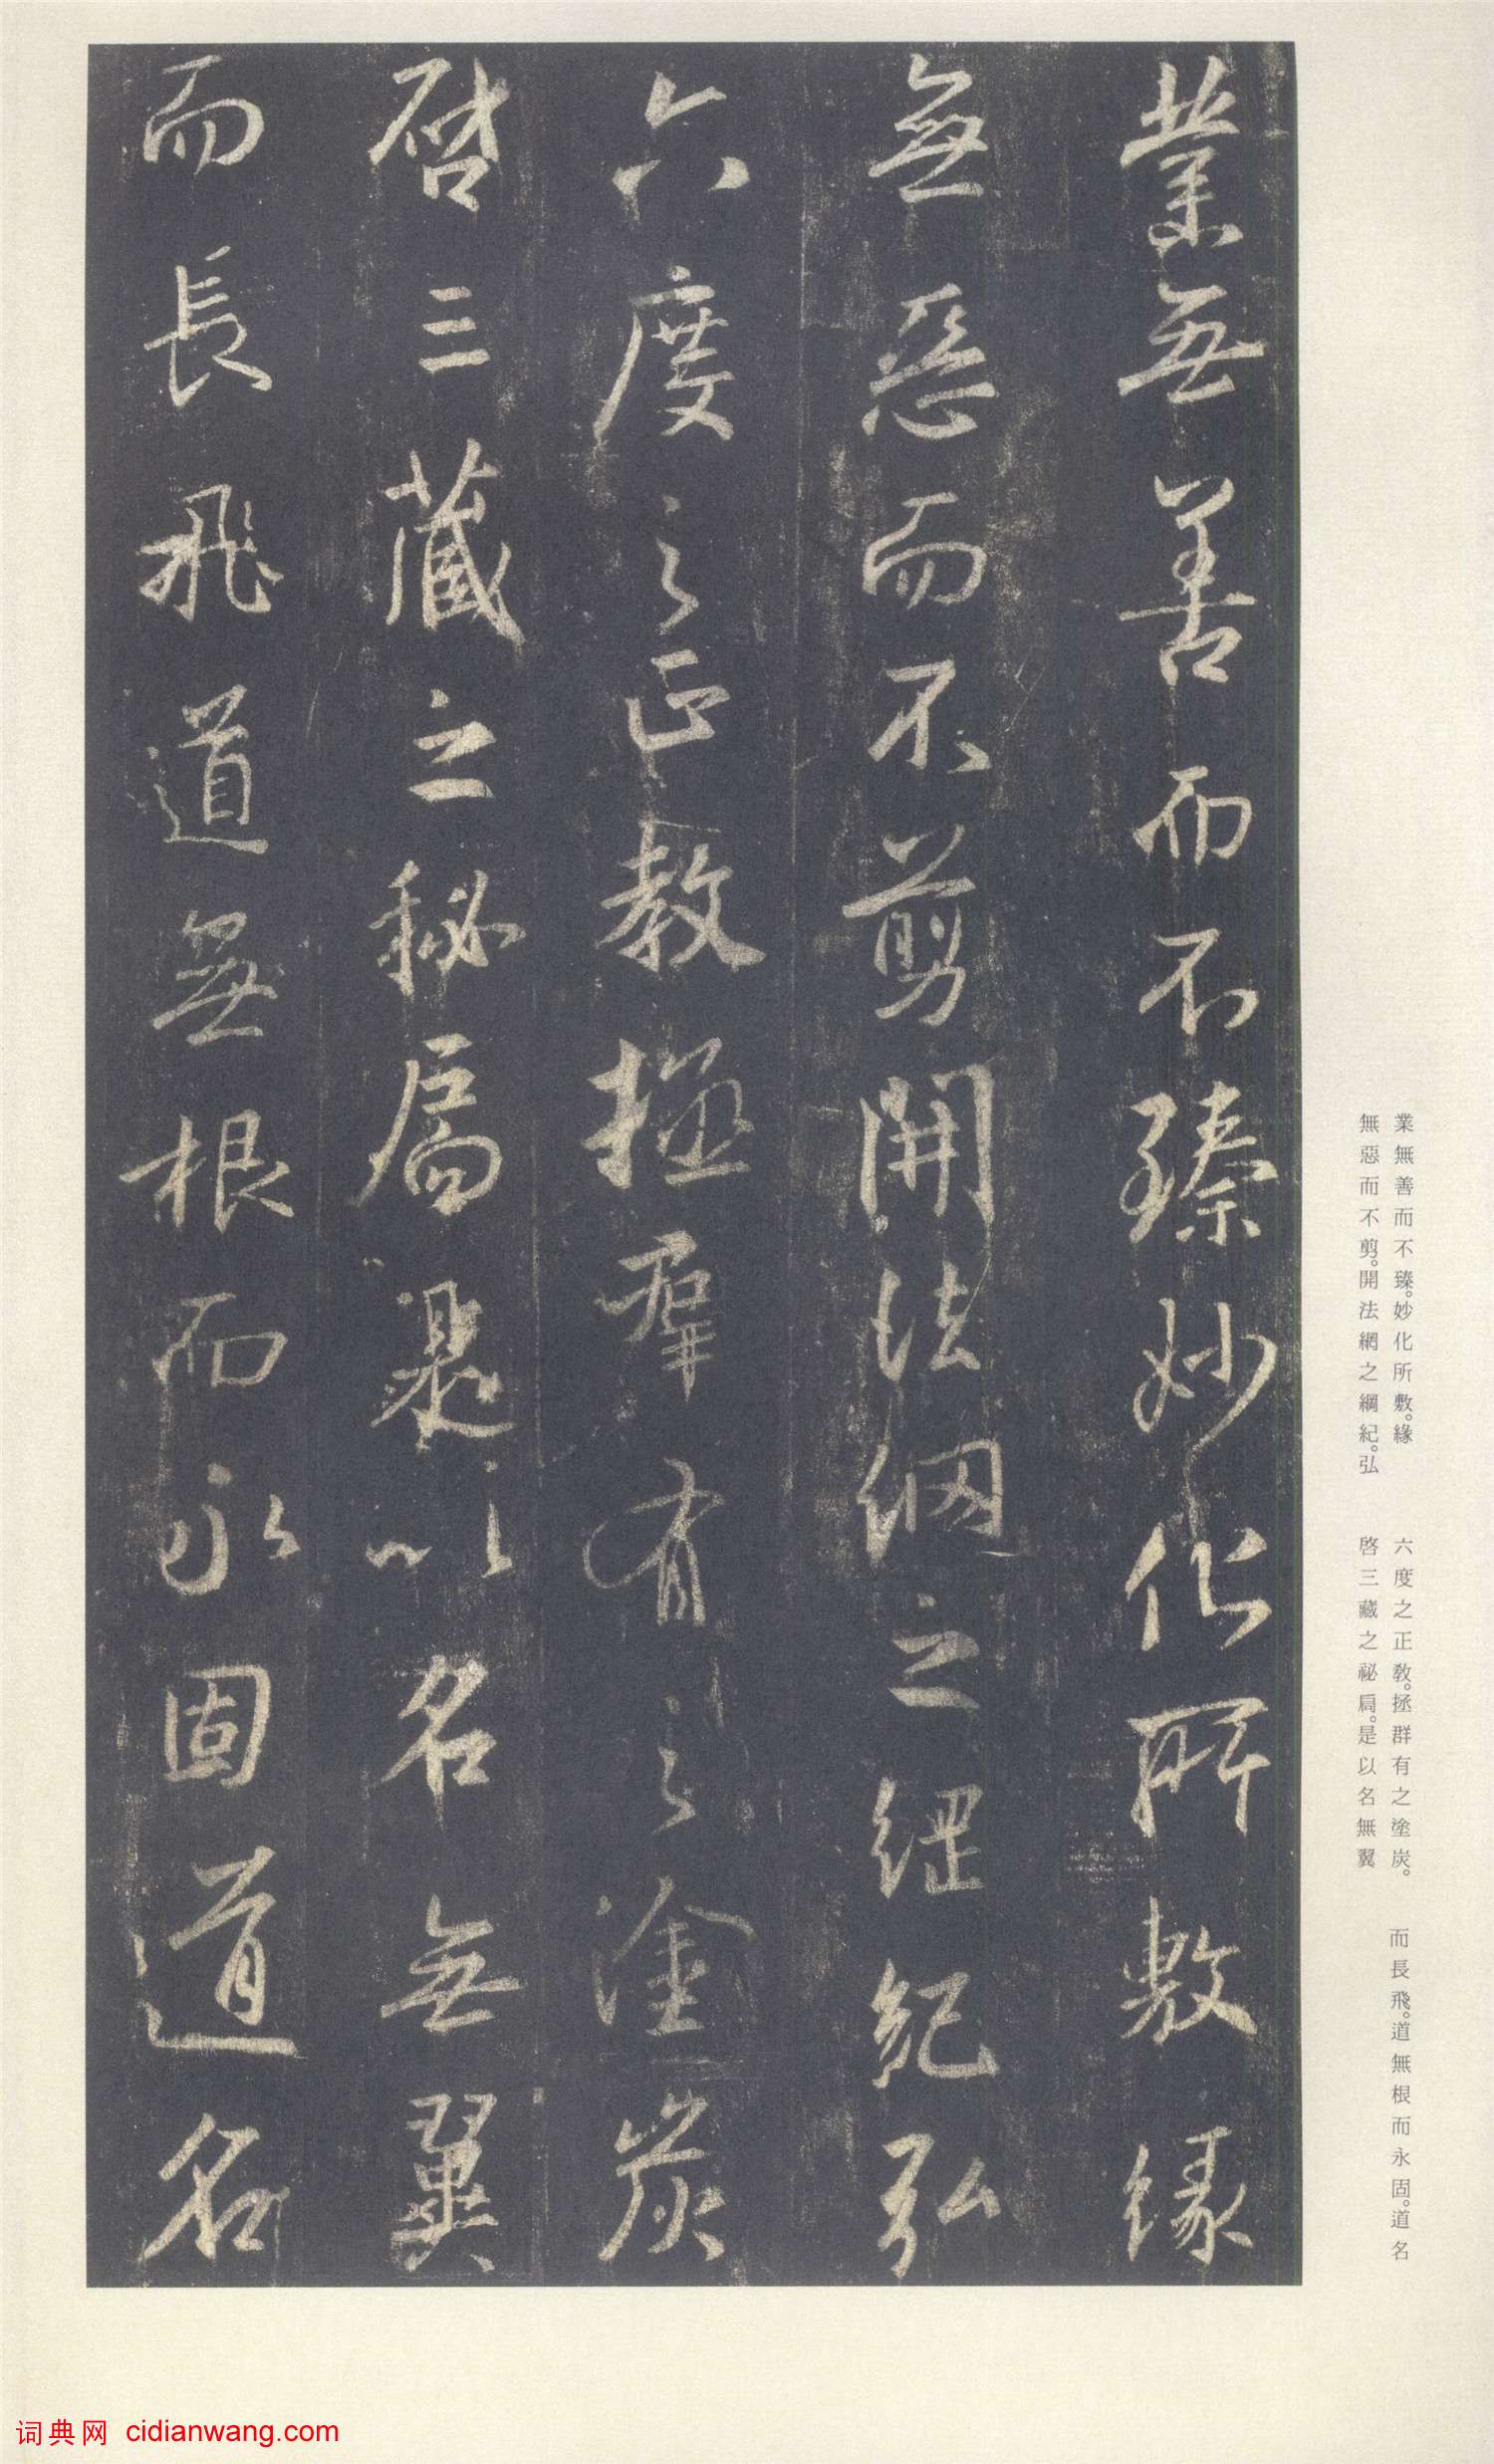 業無善而不臻妙化所敷緣
無惡而不剪開法網之綱紀弘
六度之正教拯群有之塗炭
啓三藏之秘扃是以名無翼
而長飛道無根而永固道名
業無善而不臻。妙化所敷。緣
無惡而不剪。開法網之綱紀。弘
六度之正教。拯群有之塗炭。
啓三藏之祕扃。是以名無翼
而長飛。道無根而永固。道名
词典网 cidianwang.com